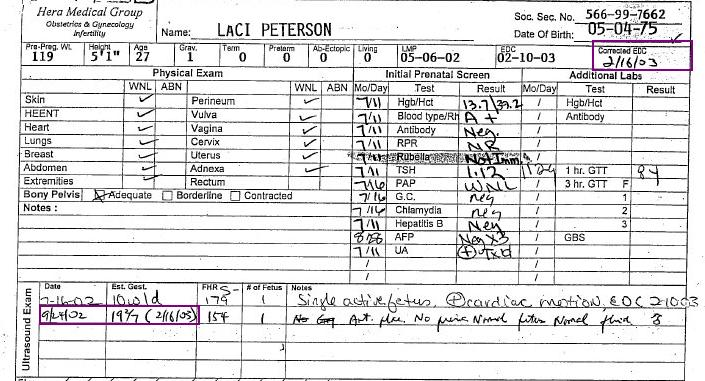 Hera Medical Group
Obstetrics & Gynecology
Infertility
Name: LACI PETERSON
Soc. Sec. No. 566-99-7662
Date Of Birth: 05-04-75
Pre-Preg. Wt. Height Age Grav. Term Preterm Ab-Ectopic Living LMP EDC Corrected EDC
119 5'1" 27 1 0 0 0 0 05-06-02 02-10-03 2/16/03
Physical Exam Initial Prenatal Screen Additional Labs
WNL ABN WNL ABN Mo/Day Test Result Mo/Day Test Result
Skin Perineum 7/11 Hgb/Hct 13.7/39.2 / Hgb/Hct
HEENT Vulva 7/11 Blood type/Rh A + / Antibody
Heart Vagina 7/11 Antibody Neg. /
Lungs Cervix 7/11 RPR NR /
Breast Uterus 7/11 Rubella Imm. /
Abdomen Adnexa 7/11 TSH 1.12 1 hr. GTT 84
Extremities Rectum 7/16 PAP WNL / 3 hr. GTT F
Bony Pelvis Adequate Borderline Contracted 7/16 G.C. neg / 1
Notes : 7/16 Chlamydia neg / 2
7/11 Hepatitis B Neg / 3
8/28 AFP Neg X3 / GBS
7/11 UA + /
Ultrasound Exam
Date Est. Gest. FHR # of Fetus Notes
7-16-02 10w1d 179 1 Single active fetus, + cardiac motion. EDC 21003
9/24/02 19 2/7 (2/16/03) 154 1 Ant. plac. No previa Normal fetus Normal fluid